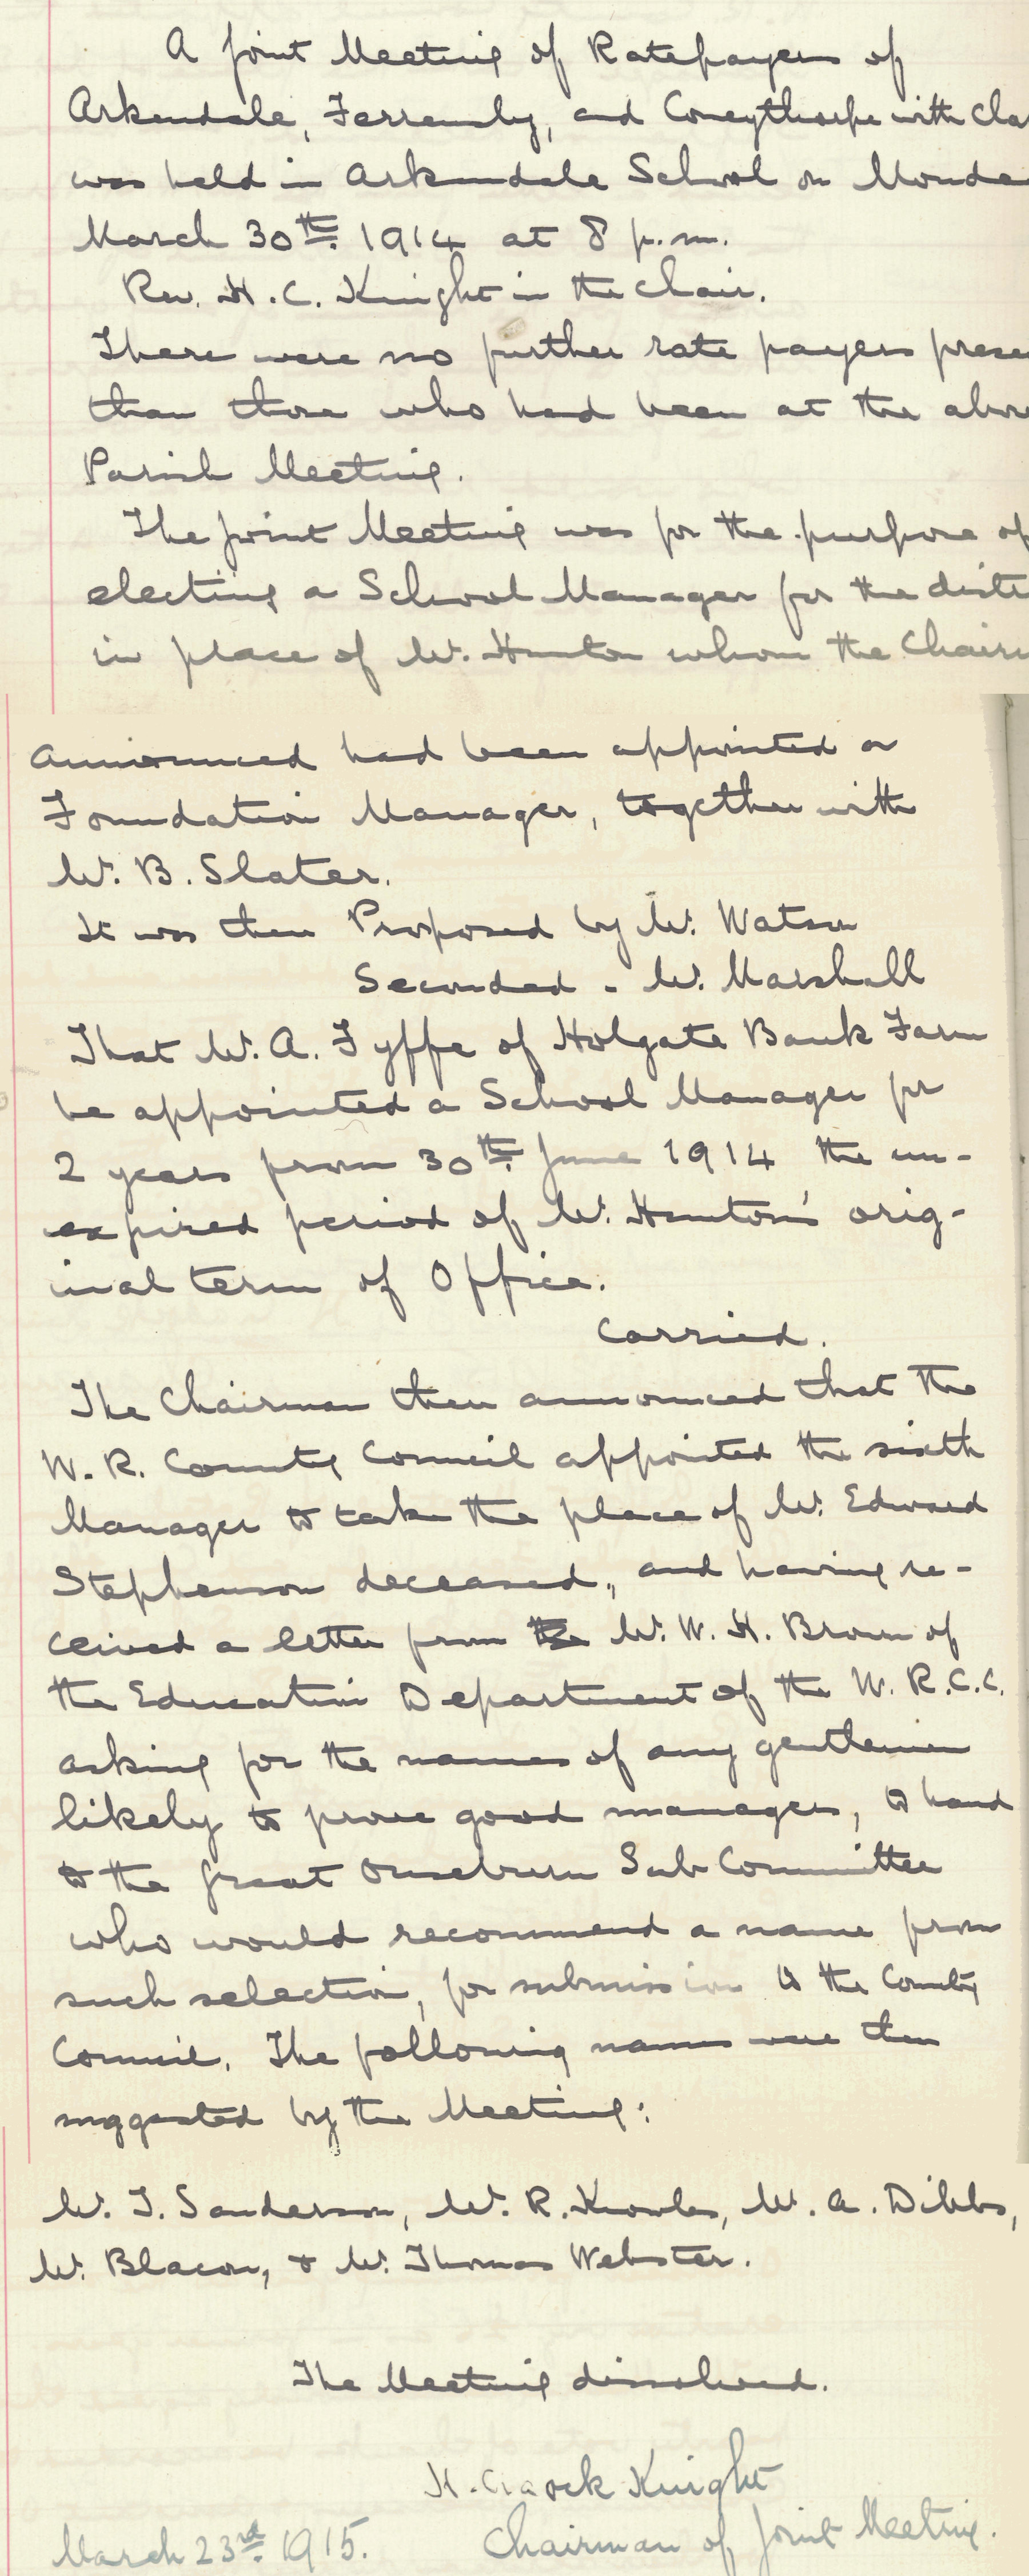 A Joint Meeting of Ratepayers of
Arkendale, Ferrensby, and Coneythorpe with Cla
was held in Arkendale School on Monda
March 30th. 1914 at 8 p.m.
Rev. H. C. Knight in the Chair.
There were no further rate payers prese
than those who had been at the abov
Parish Meeting.
The Joint Meeting was for the purpose of
electing a School Manager for the distr
in place of Mr. Hunton whom the Chairm
announced had been appointed a
Foundation Manager, together with
Mr. B. Slater.
It was then Proposed by Mr. Watson
Seconded - Mr. Marshall
That Mr. A. Fyffe of Holgate Bank Farm
be appointed a School Manager for
2 years from 30th. June 1914 the un-
expired period of Mr. Hunton's orig-
inal term of Office.
Carried.
The Chairman then announced that the
W. R. County Council appointed the sixth
Manager to take the place of Mr. Edward
Stephenson deceased, and having re-
ceived a letter from the Mr. W. H. Brown of
the Education Department of the W. R. C. C.
asking for the names of any gentlemen
likely to prove good managers, to hand
to the Great Ouseburn Sub Committee
who would recommend a name from
such selection, for submission to the County
Council. The following names were then
suggested by the Meeting:
Mr. T. Sanderson, Mr. R. Knowles, Mr. A. Dibbs,
Mr. Blacon, & Mr. Thomas Webster.
The Meeting dissolved.
H. Knight
March 23rd. 1915. Chairman of Joint Meeting.